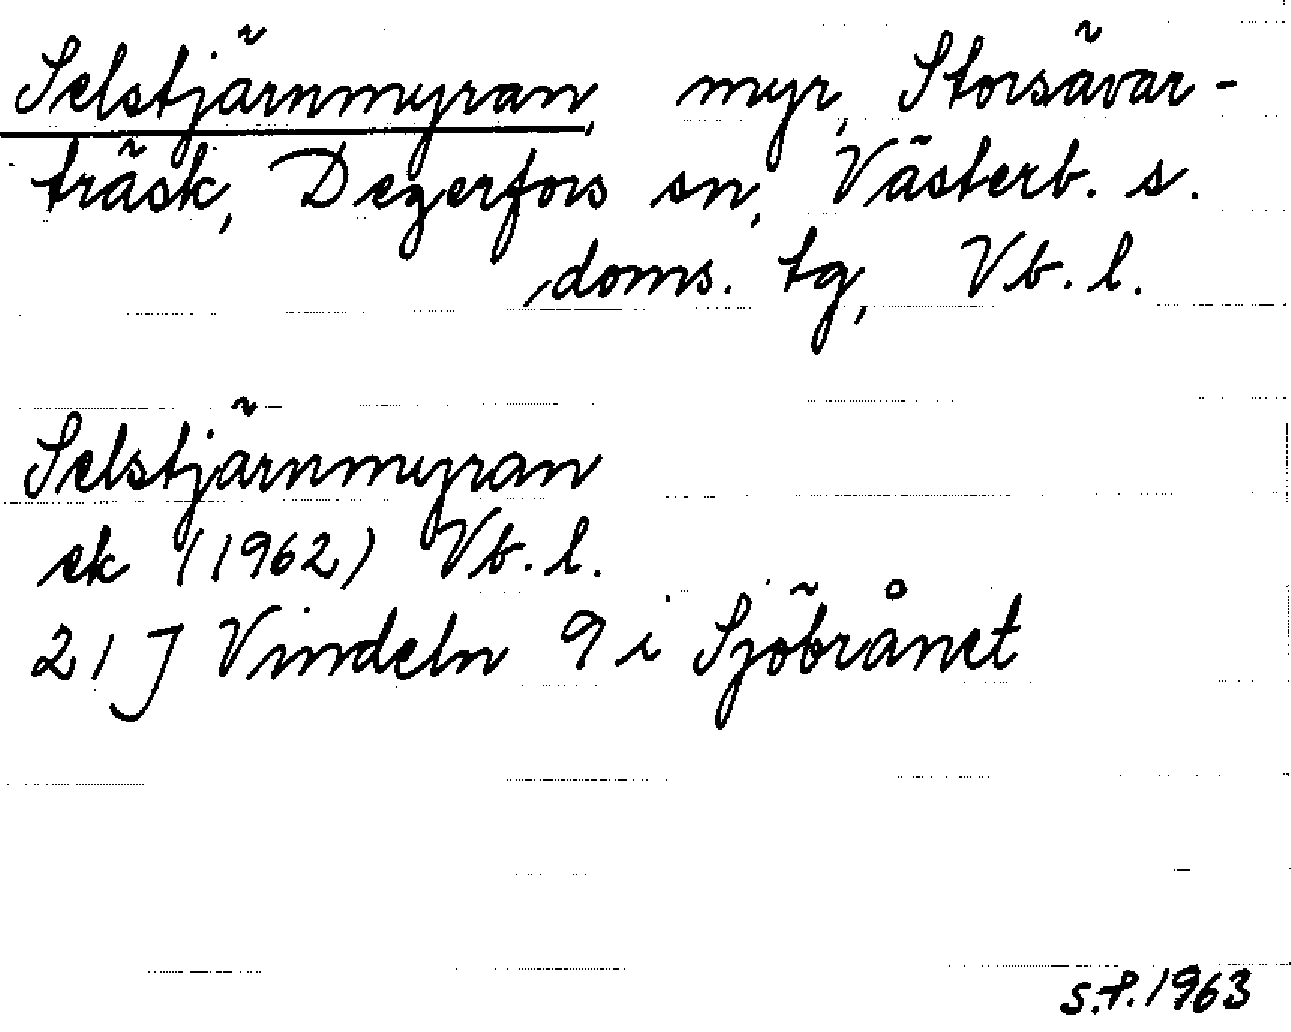 Selstjärnmyran, myr, Storsävar-
träsk, Degerfors sn, Västerb. s.
doms. tg, Vb. l.
Selstjärnmyran
ek (1962) Vb. l.
21 J Vindeln 9 i Sjöbrånet
S.P. 1963